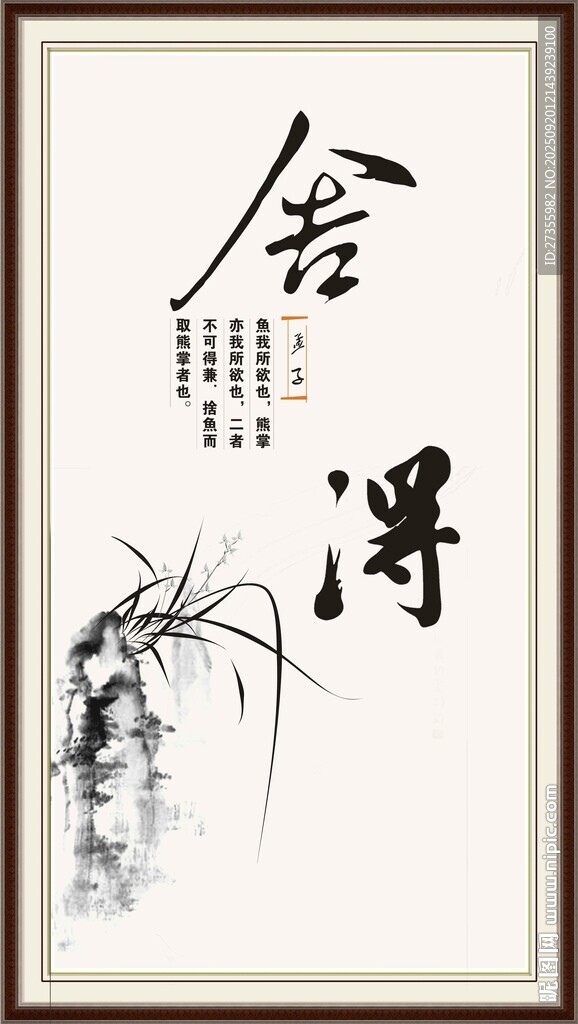 舍
得
孟子
魚我所欲也，熊掌
亦我所欲也，二者
不可得兼．捨魚而
取熊掌者也。
ID:27355982 NO:20250920121439239100
昵图网 www.nipic.com